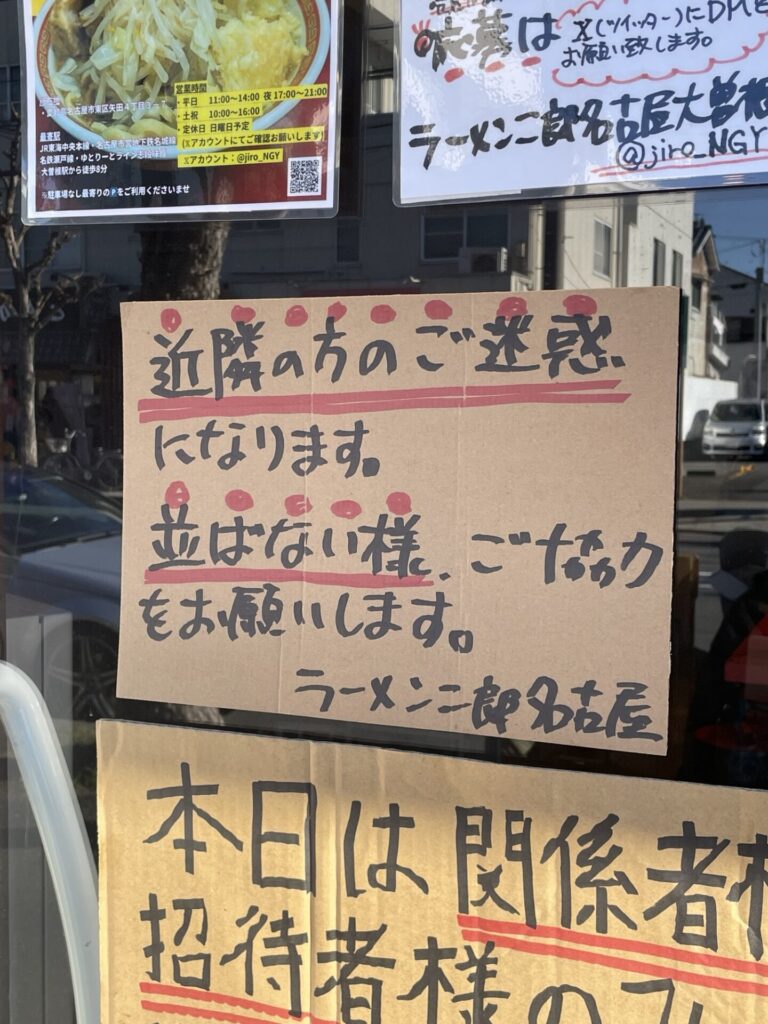 営業時間
・平日 11:00〜14:00 夜17:00〜21:00
・土祝 10:00〜16:00
・定休日 日曜日予定
(Xアカウントにてご確認お願いします)
Xアカウント：@jiro_NGY
名古屋市東区矢田4丁目3
最寄駅
JR東海中央本線・名古屋市営地下鉄名城線
名鉄瀬戸線・ゆとりーとライン
大曽根駅から徒歩8分
※駐車場なし最寄りのPをご利用くださいませ
の応募は X(ツイッター)にDMを
お願い致します。
ラーメン二郎名古屋大曽根
@jiro_NGY
近隣の方のご迷惑
になります。
並ばない様、ご協力
をお願いします。
ラーメン二郎名古屋
本日は関係者
招待者様の